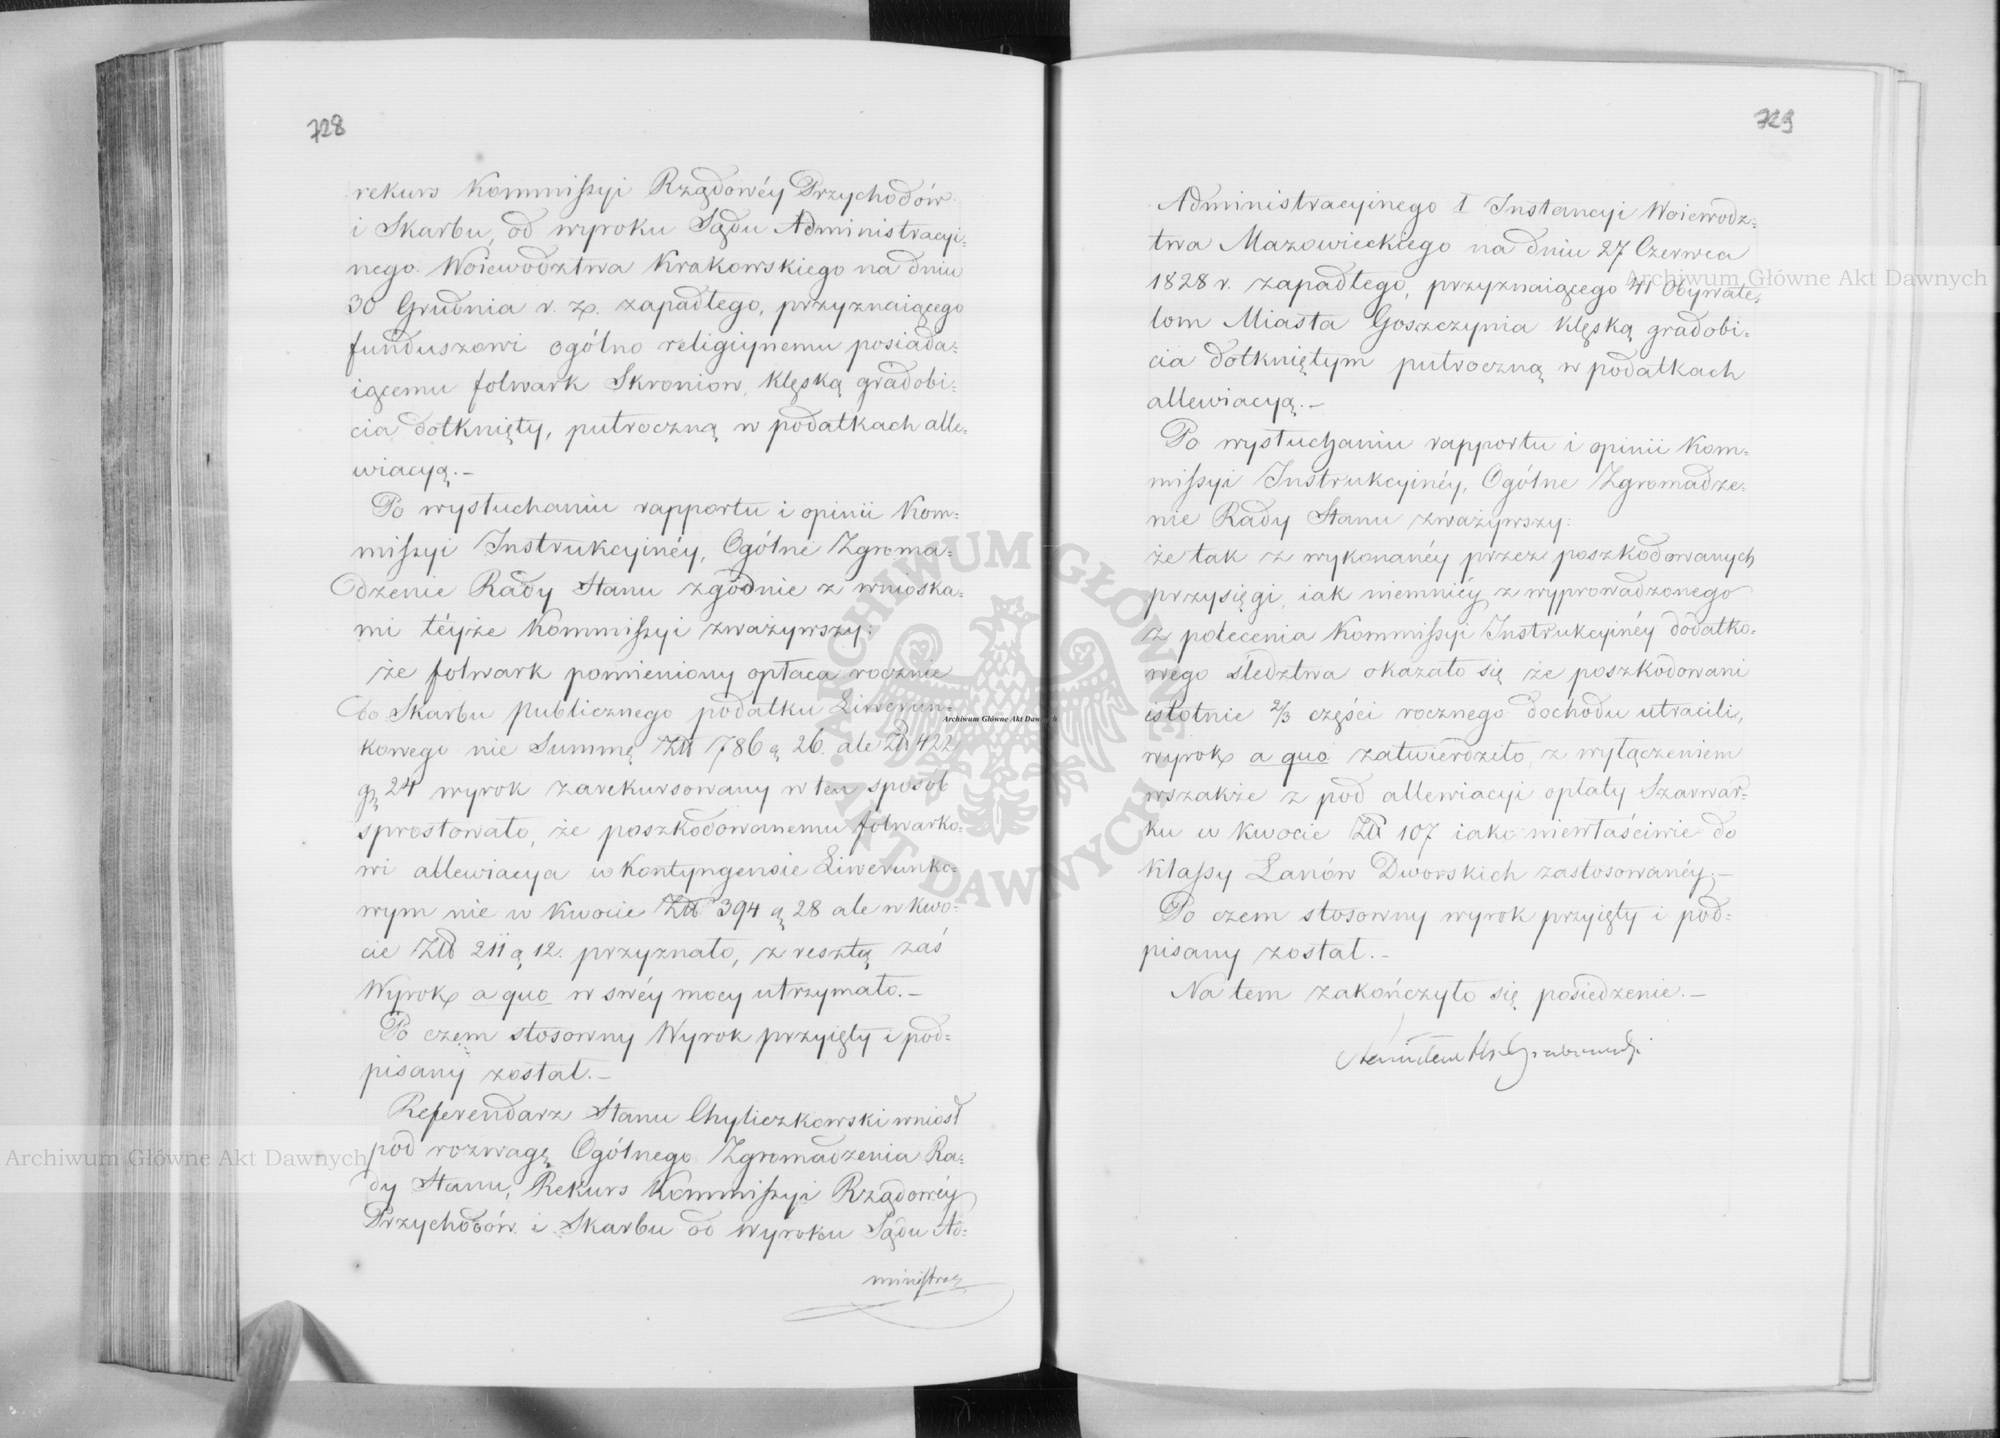 728
rekurs Kommissyi Rządowéy Przychodów
i Skarbu, od wyroku Sądu Administracyi-
nego Woiewodztwa Krakowskiego na dniu
30 Grudnia r. z. zapadłego, przyznaiącego
funduszowi ogólno religiynemu posiada-
iącemu folwark Skroniow, klęską gradobi-
cia dotknięty, pułroczną w podatkach alle-
wiacyą.-
Po wysłuchaniu rapportu i opinii Kom-
missyi Instrukcyinéy, Ogólne Zgroma-
dzenie Rady Stanu zgodnie z wnioska-
mi téyże Kommissyi zważywszy:
że folwark pomieniony opłaca rocznie
do Skarbu publicznego podatku Liwerun-
kowego nie Summę Złt 786 g 26. ale Zł 422
g 24 wyrok zarekursowany w ten sposób
sprostowało, że poszkodowanemu folwarko-
wi allewiacya w Kontyngensie Liwerunko-
wym nie w kwocie Złt 394 g 28 ale w kwo-
cie Złt 211 g 12. przyznało, z resztą zaś
Wyrok a quo w swéy mocy utrzymało.-
Po czem stosowny Wyrok przyięty i pod-
pisany został.-
Referendarz Stanu Chyliczkowski wniosł
pod rozwagę Ogólnego Zgromadzenia Ra-
dy Stanu, Rekurs Kommissyi Rządowéy
Przychodów i Skarbu od Wyroku Sądu Ad-
ministrac
729
Administracyinego I Instancyi Woiewodz-
twa Mazowieckiego na dniu 27 Czerwca
1828 r. zapadłego, przyznaiącego 41 Obywate-
lom Miasta Goszczynia klęską gradobi-
cia dotkniętym pułroczną w podatkach
allewiacyą.-
Po wysłuchaniu rapportu i opinii Kom-
missyi Instrukcyinéy, Ogólne Zgromadze-
nie Rady Stanu zważywszy:
że tak z wykonanéy przez poszkodowanych
przysięgi, iak niemniéy z wyprowadzonego
z polecenia Kommissyi Instrukcyinéy dodatko-
wego śledztwa okazało się że poszkodowani
istotnie 2/3 części rocznego dochodu utracili,
wyrok a quo zatwierdziło, z wyłączeniem
wszakże z pod allewiacyi opłaty Szarwar-
ku w kwocie Złt 107 iako niewłaściwie do
klassy Łanów Dworskich zastosowanéy.-
Po czem stosowny wyrok przyięty i pod-
pisany został.-
Na tem zakończyło się posiedzenie.-
Archiwum Główne Akt Dawnych
Archiwum Główne Akt Dawnych
Archiwum Główne Akt Dawnych
ARCHIWUM GŁÓWNE · AKT DAWNYCH ·